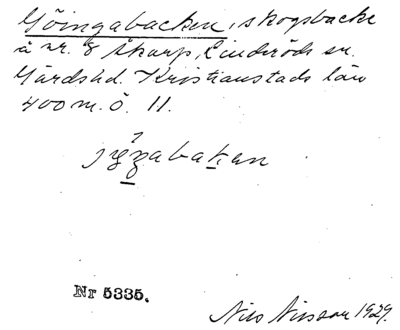 Göingabacken, skogsbacke
å nr. 8 Åkarp, Linderöds sn.
Gärds hd. Kristianstads län
400 m. ö. 11.
Nr 5335.
Nils Nilsson 1929.